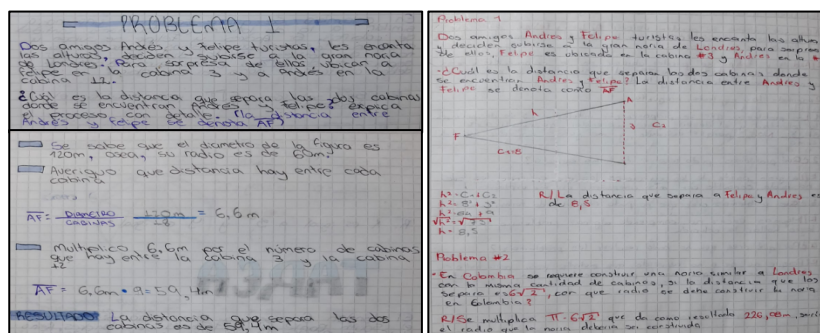 PROBLEMA 1
Dos amigos Andrés y Felipe turistas, les encanta
las alturas, deciden subirse a la gran noria
de Londres. Para sorpresa de ellos ubican a
Felipe en la cabina 3 y a Andrés en la
cabina 12.
¿Cuál es la distancia que separa las dos cabinas
donde se encuentran Andrés y Felipe? explica
el proceso con detalle. (la distancia entre
Andrés y Felipe se denota AF)
Se sabe que el diametro de la figura es
120m, osea, su radio es de 60m.
Averiguo que distancia hay entre cada
cabina
AF = DIAMETRO 120m = 6,6m
CABINAS 18
Multiplico 6,6m por el número de cabinas
que hay entre la cabina 3 y la cabina
12
AF = 6,6m • 9 = 59,4m
RESULTADO La distancia que separa las dos
cabinas es de 59,4m
Problema 1
Dos amigos Andres y Felipe turistas, les encanta las alturas
y deciden subirse a la gran noria de Londres, para sorpresa
de ellos, Felipe es ubicado en la cabina #3 y Andres en la
¿Cuál es la distancia que separa las dos cabinas donde
se encuentran Andres y Felipe? La distancia entre Andres y
Felipe se denota como AF
A
h
F
3 C2
C1=8
h² = C1 + C2
h² = 8² + 3²
h² = 64 + 9
√h² = √73
h = 8,5
R/ La distancia que separa a Felipe y Andres es
de 8,5
Problema #2
En Colombia se requiere construir una noria similar a Londres
con la misma cantidad de cabinas, si la distancia que los
separa es 6√2, con que radio se debe construir la noria
en Colombia?
R/ Se multiplica π • 6√2 que da como resultado 226,08m,
el radio que la noria deberia ser construida.